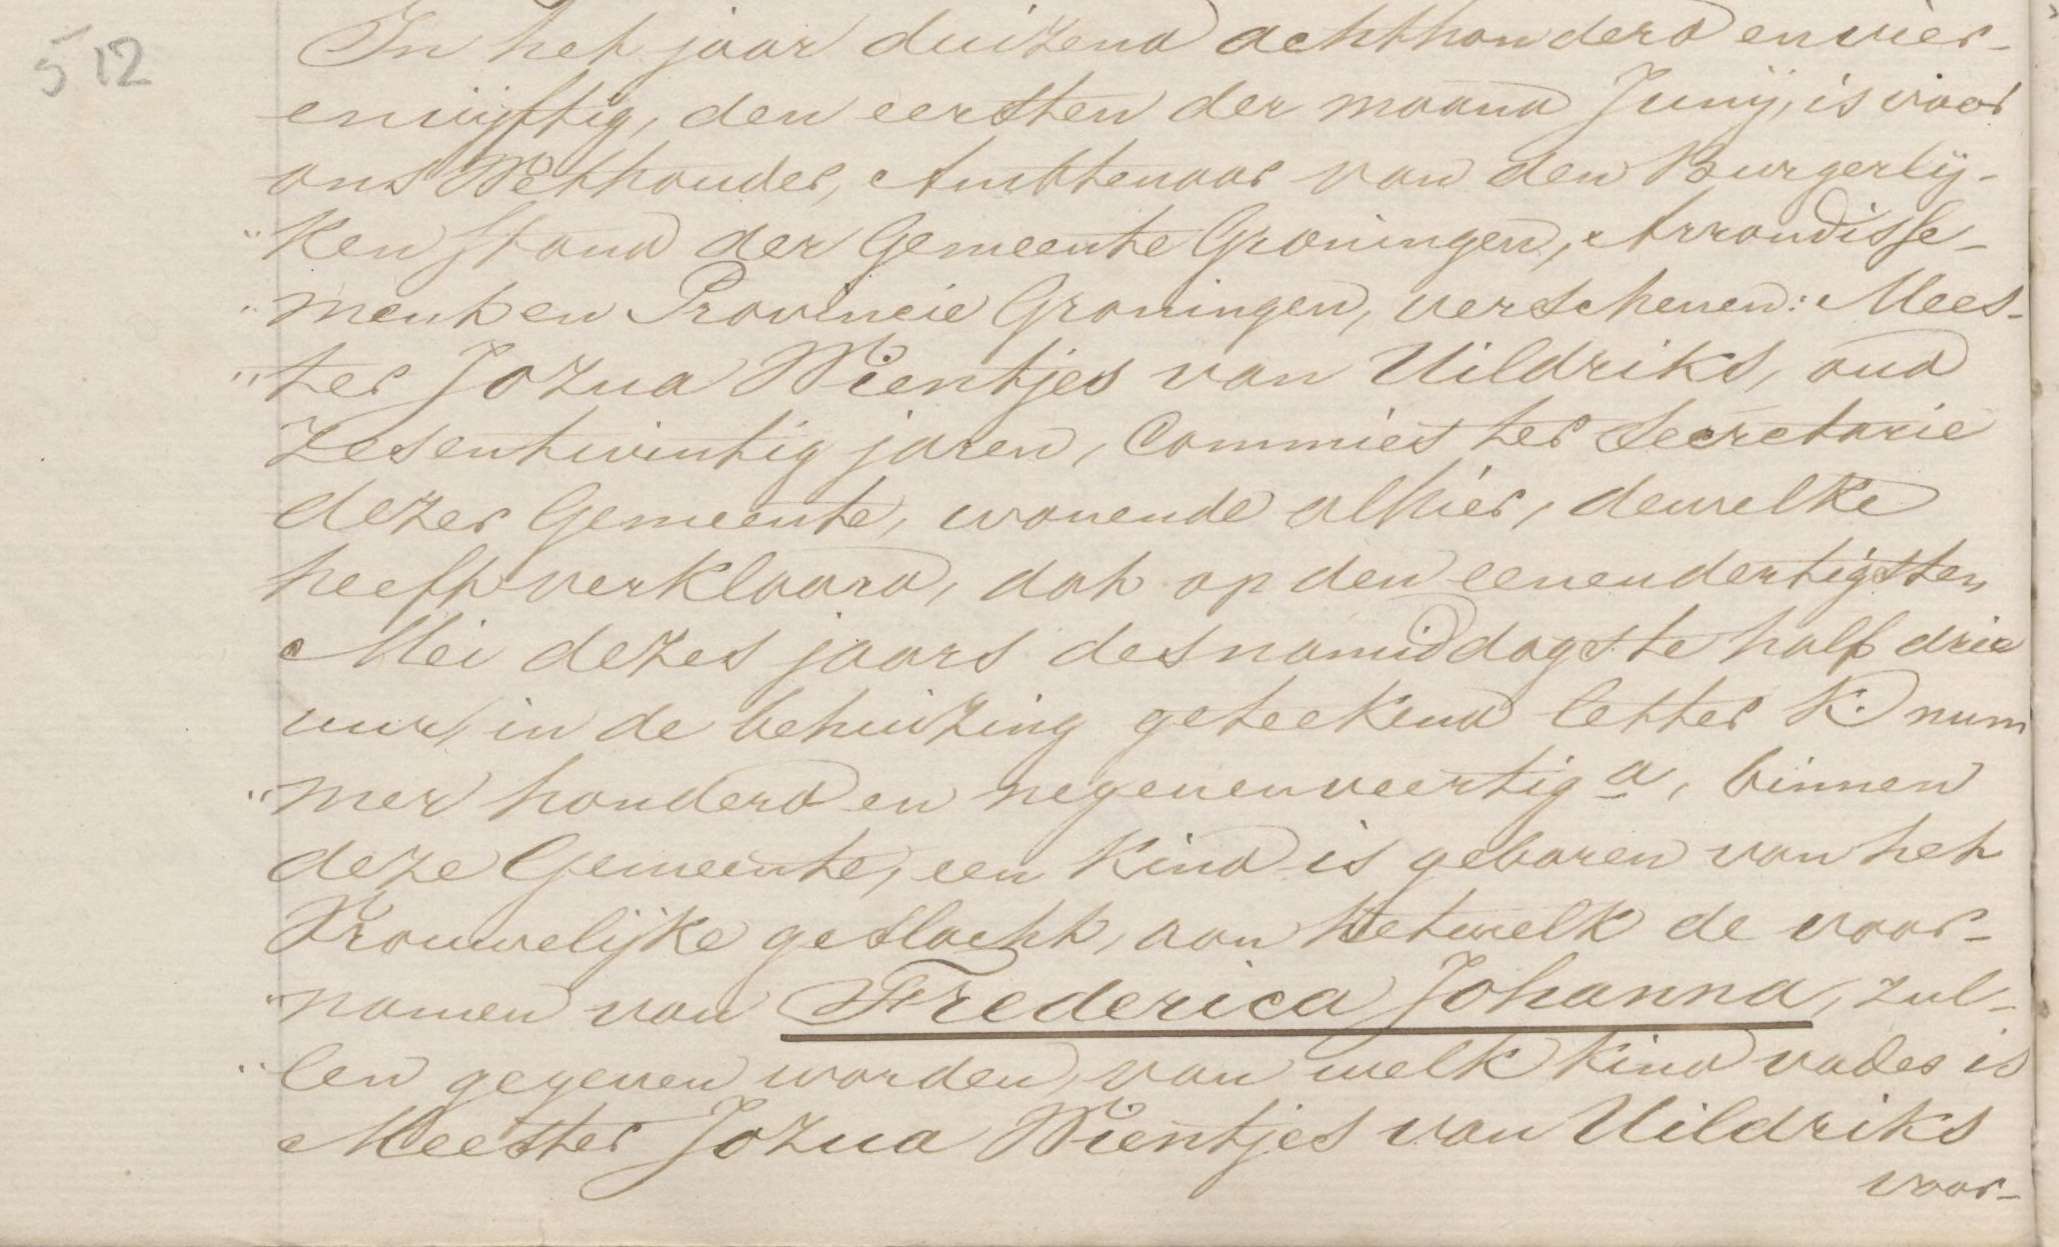 512
In het jaar duizend achthonderd en vier-
envijftig, den eersten der maand Junij, is voor
ons Wethouder, Ambtenaar van den Burgerlij-
"ken stand der Gemeente Groningen, Arrondisse-
"ment en Provincie Groningen, verschenen: Mees-
"ter Jozua Wientjes van Uildriks, oud
zesentwintig jaren, Commies ter Secretarie
dezer Gemeente, wonende alhier, dewelke
heeft verklaard, dat op den eenendertigsten
Mei dezes jaars des namiddags te half drie
uur, in de behuizing geteekend letter K. num
"mer honderd en negenenveertig a, binnen
deze Gemeente, een kind is geboren van het
Vrouwelijke geslacht, aan hetwelk de voor-
"namen van Frederica Johanna, zul-
"len gegeven worden, van welk kind vader is
Meester Jozua Wientjes van Uildriks
voor-